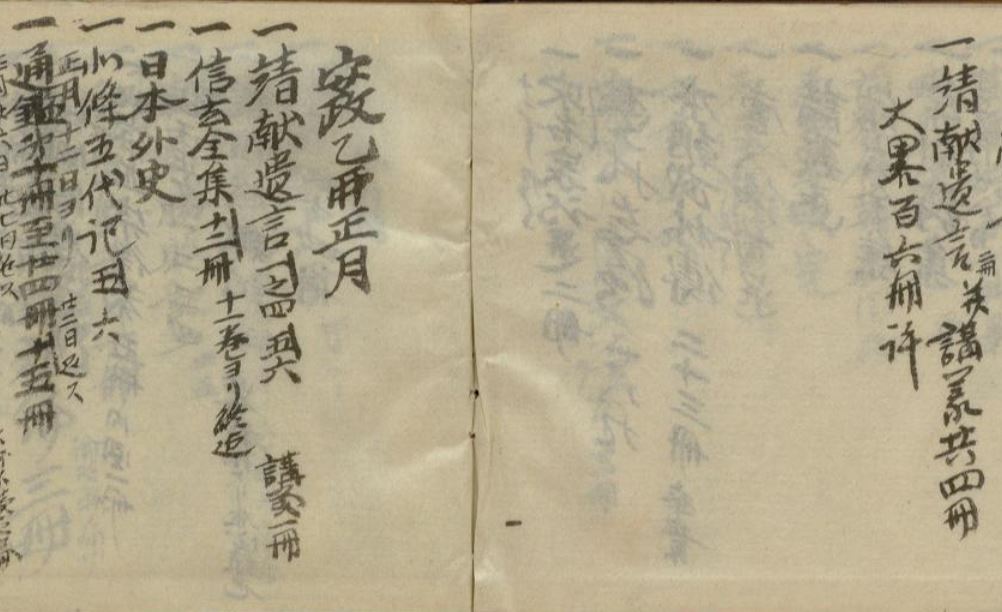 一靖献遺言三冊并講義共四冊
大畧百六冊許
安政乙丣正月
一靖献遺言一之四五六 講義一冊
一信玄全集十二冊十一巻ヨリ終迄
一日本外史
一北條五代記五六
正月十二日ヨリ 廿二日返ス
一通鑑第十冊至廿四冊十五冊